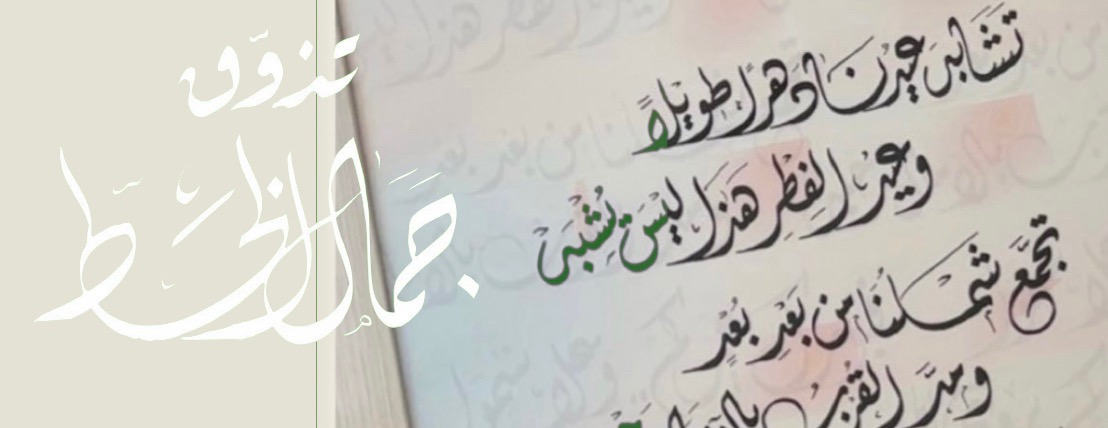 تذوّق
جمال الخط
تَشَابَهَ عيدنا دهرًا طويلًا
وعيد الفِطرِ هَذا ليْسَ يُشْبِهْ
تجمَّع شملُنَا من بَعْدِ بُعْدٍ
ومدَّ القُربُ